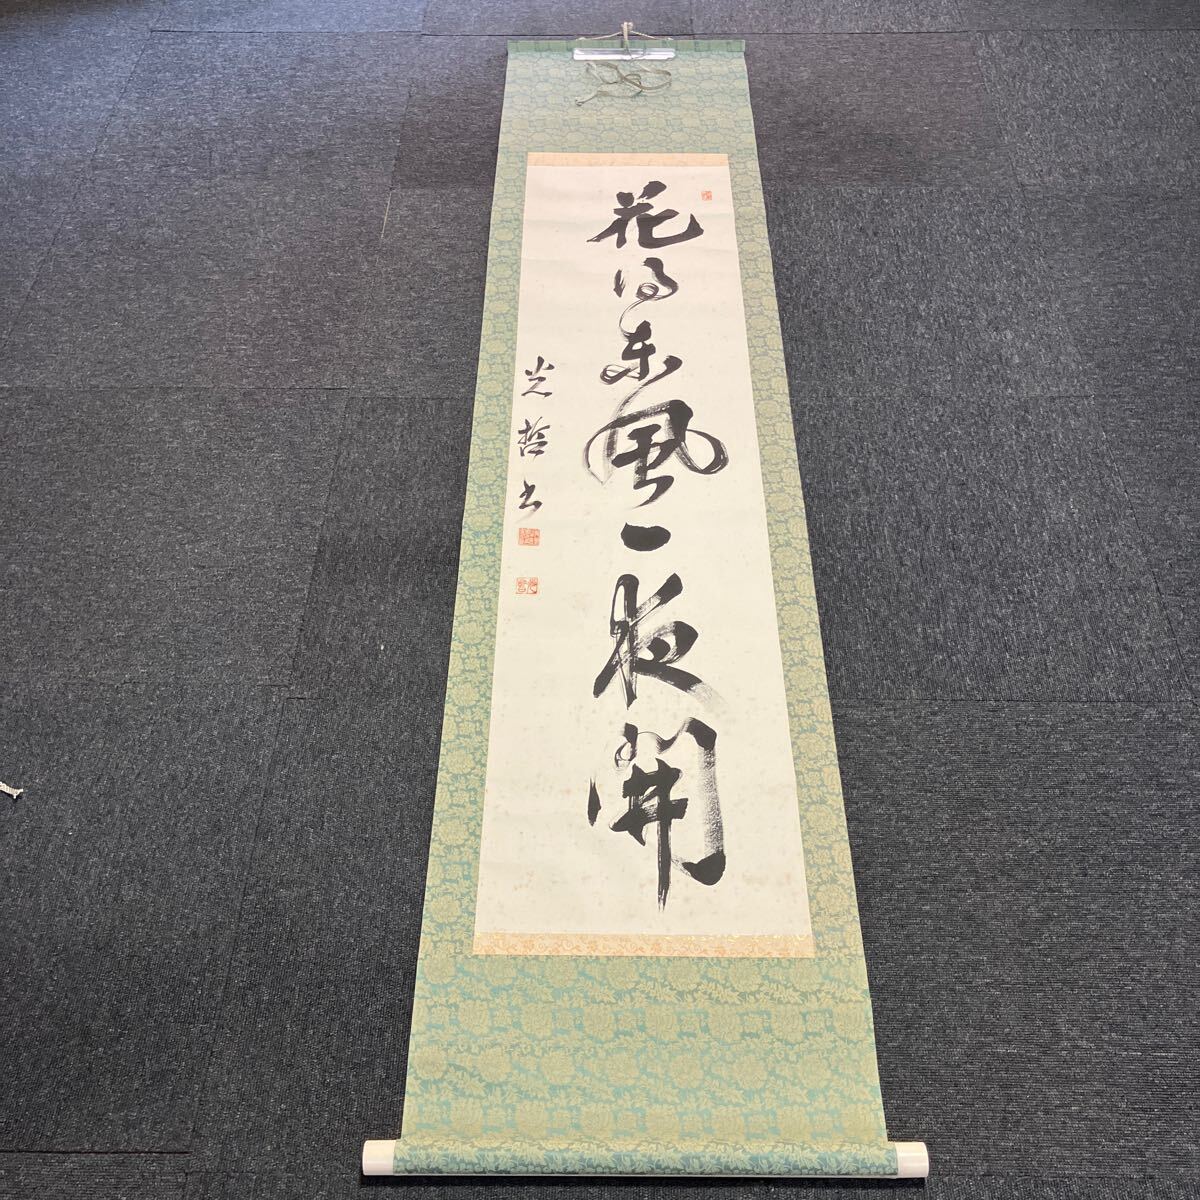 花得東風一夜開
光哲書